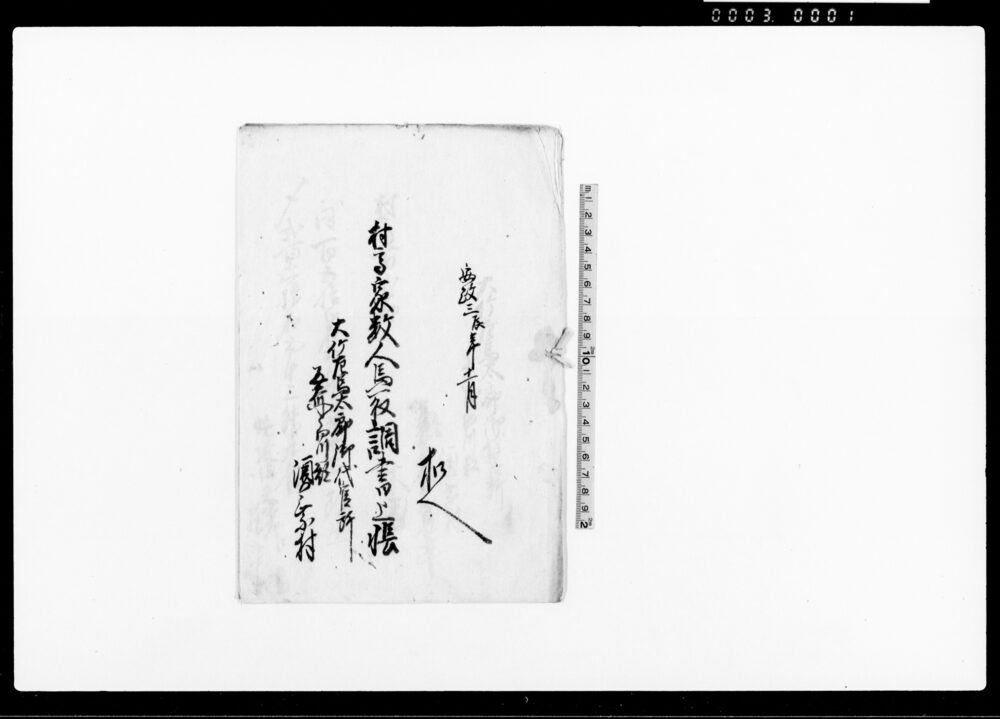 0003 0001
安政三辰年十一月
扣
村高家数人馬取調書上帳
大竹左馬太郎御代官所
奥州白川郡
村
1 2 3 4 5 6 7 8 9 10 1 2 3 4 5 6 7 8 9 2